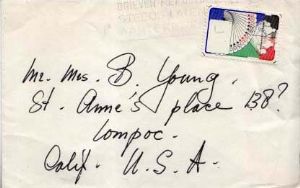 BRIEVEN
Mr. Mrs. B. Young.
St. Anne's place 138?
Lompoc.
Calif. U.S.A.